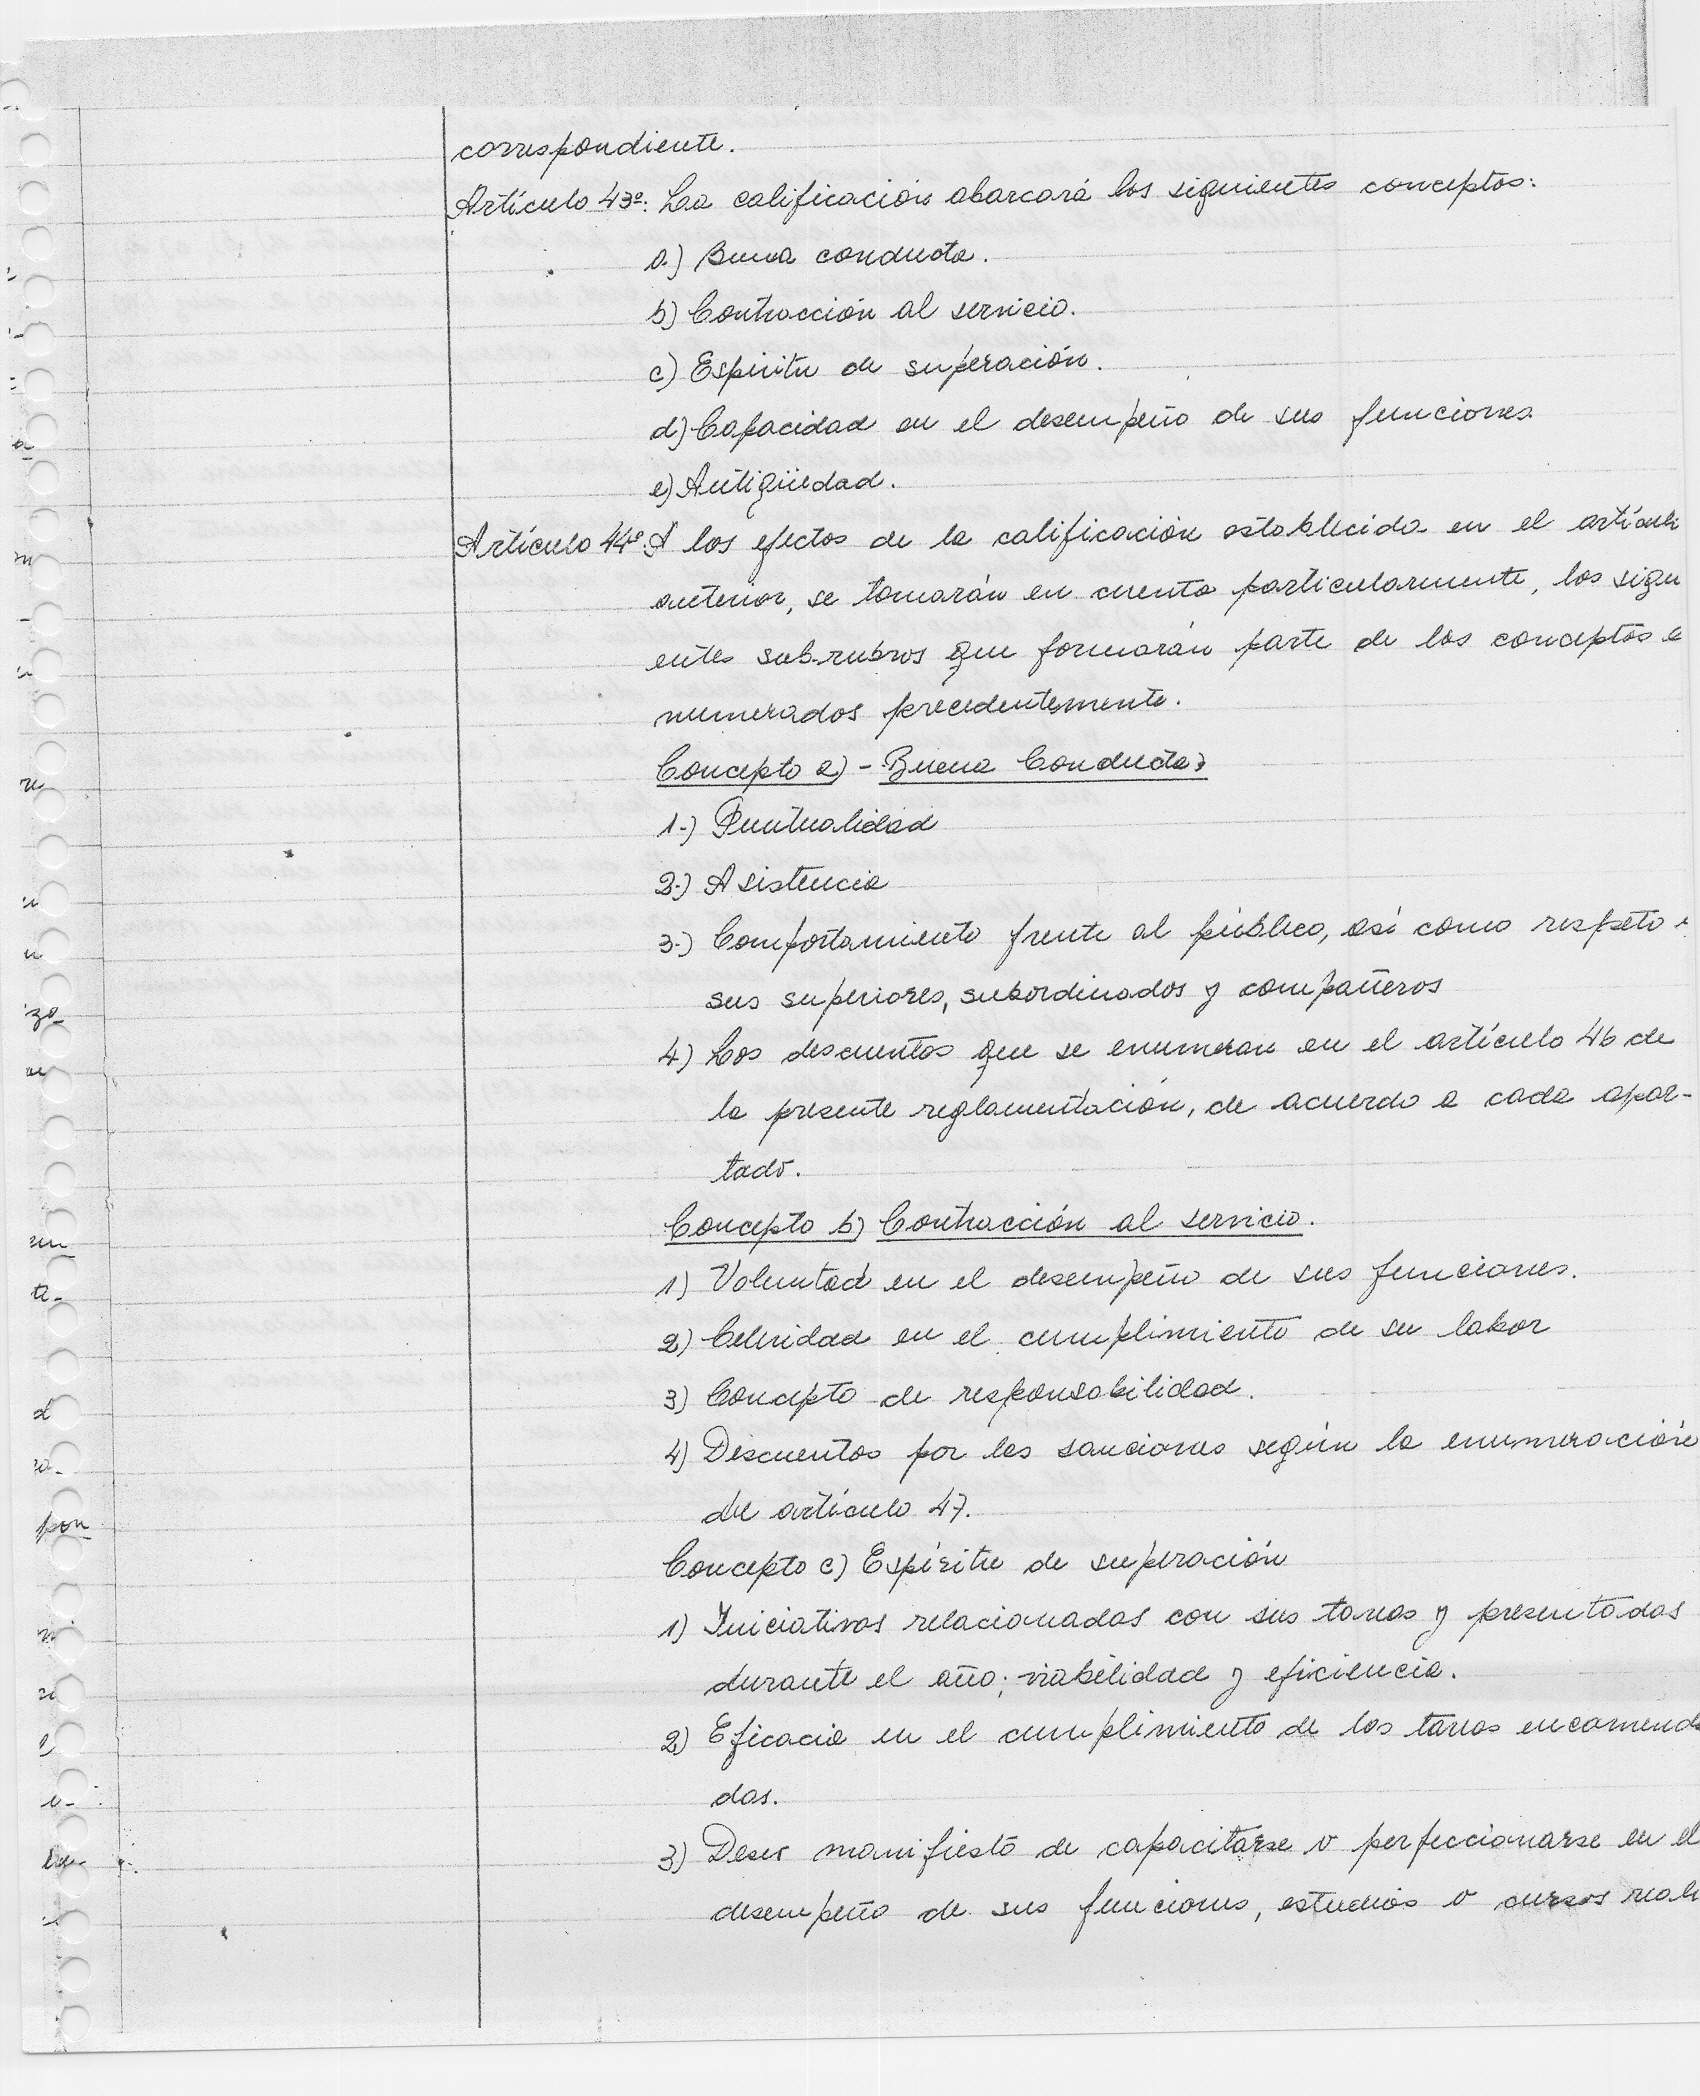 correspondiente.
Artículo 43º: La calificación abarcará los siguientes conceptos:
a.) Buena conducta.
b) Contracción al servicio.
c) Espíritu de superación.
d) Capacidad en el desempeño de sus funciones
e) Antigüedad.
Artículo 44º A los efectos de la calificación establecida en el artícul
anterior, se tomarán en cuenta particularmente, los sigui
entes sub-rubros que formarán parte de los conceptos e
numerados precedentemente.
Concepto a) - Buena Conducta
1-) Puntualidad
2-) Asistencia
3-) Comportamiento frente al público, así como respeto
sus superiores, subordinados y compañeros
4) Los descuentos que se enumeran en el artículo 46 de
la presente reglamentación, de acuerdo a cada apar-
tado.
Concepto b) Contracción al servicio.
1) Voluntad en el desempeño de sus funciones.
2) Celeridad en el cumplimiento de su labor
3) Concepto de responsabilidad.
4) Descuentos por las sanciones según la enumeración
del artículo 47.
Concepto c) Espíritu de superación
1) Iniciativas relacionadas con sus tareas y presentadas
durante el año; viabilidad y eficiencia.
2) Eficacia en el cumplimiento de las tareas encomenda
das.
3) Deseo manifiesto de capacitarse o perfeccionarse en el
desempeño de sus funciones, estudios o cursos reali